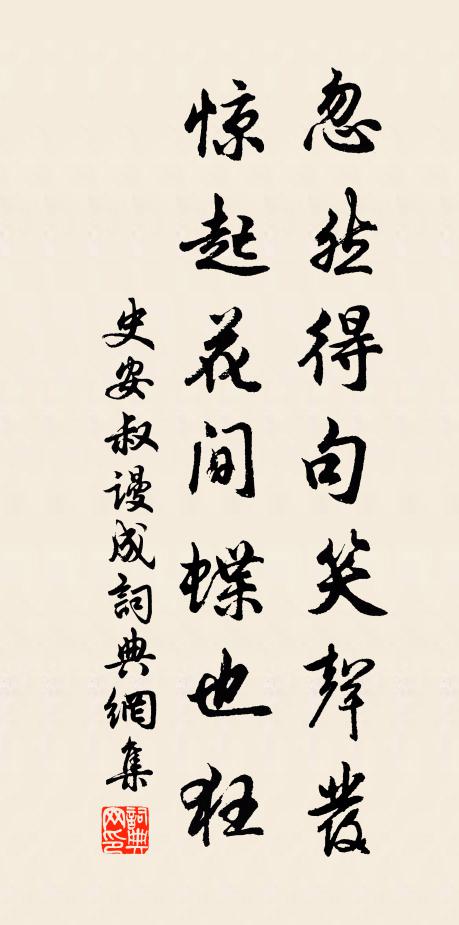 忽然得句笑聲發
惊起花间蝶也狂
史安叔谩成詞典網集
詞典
网印